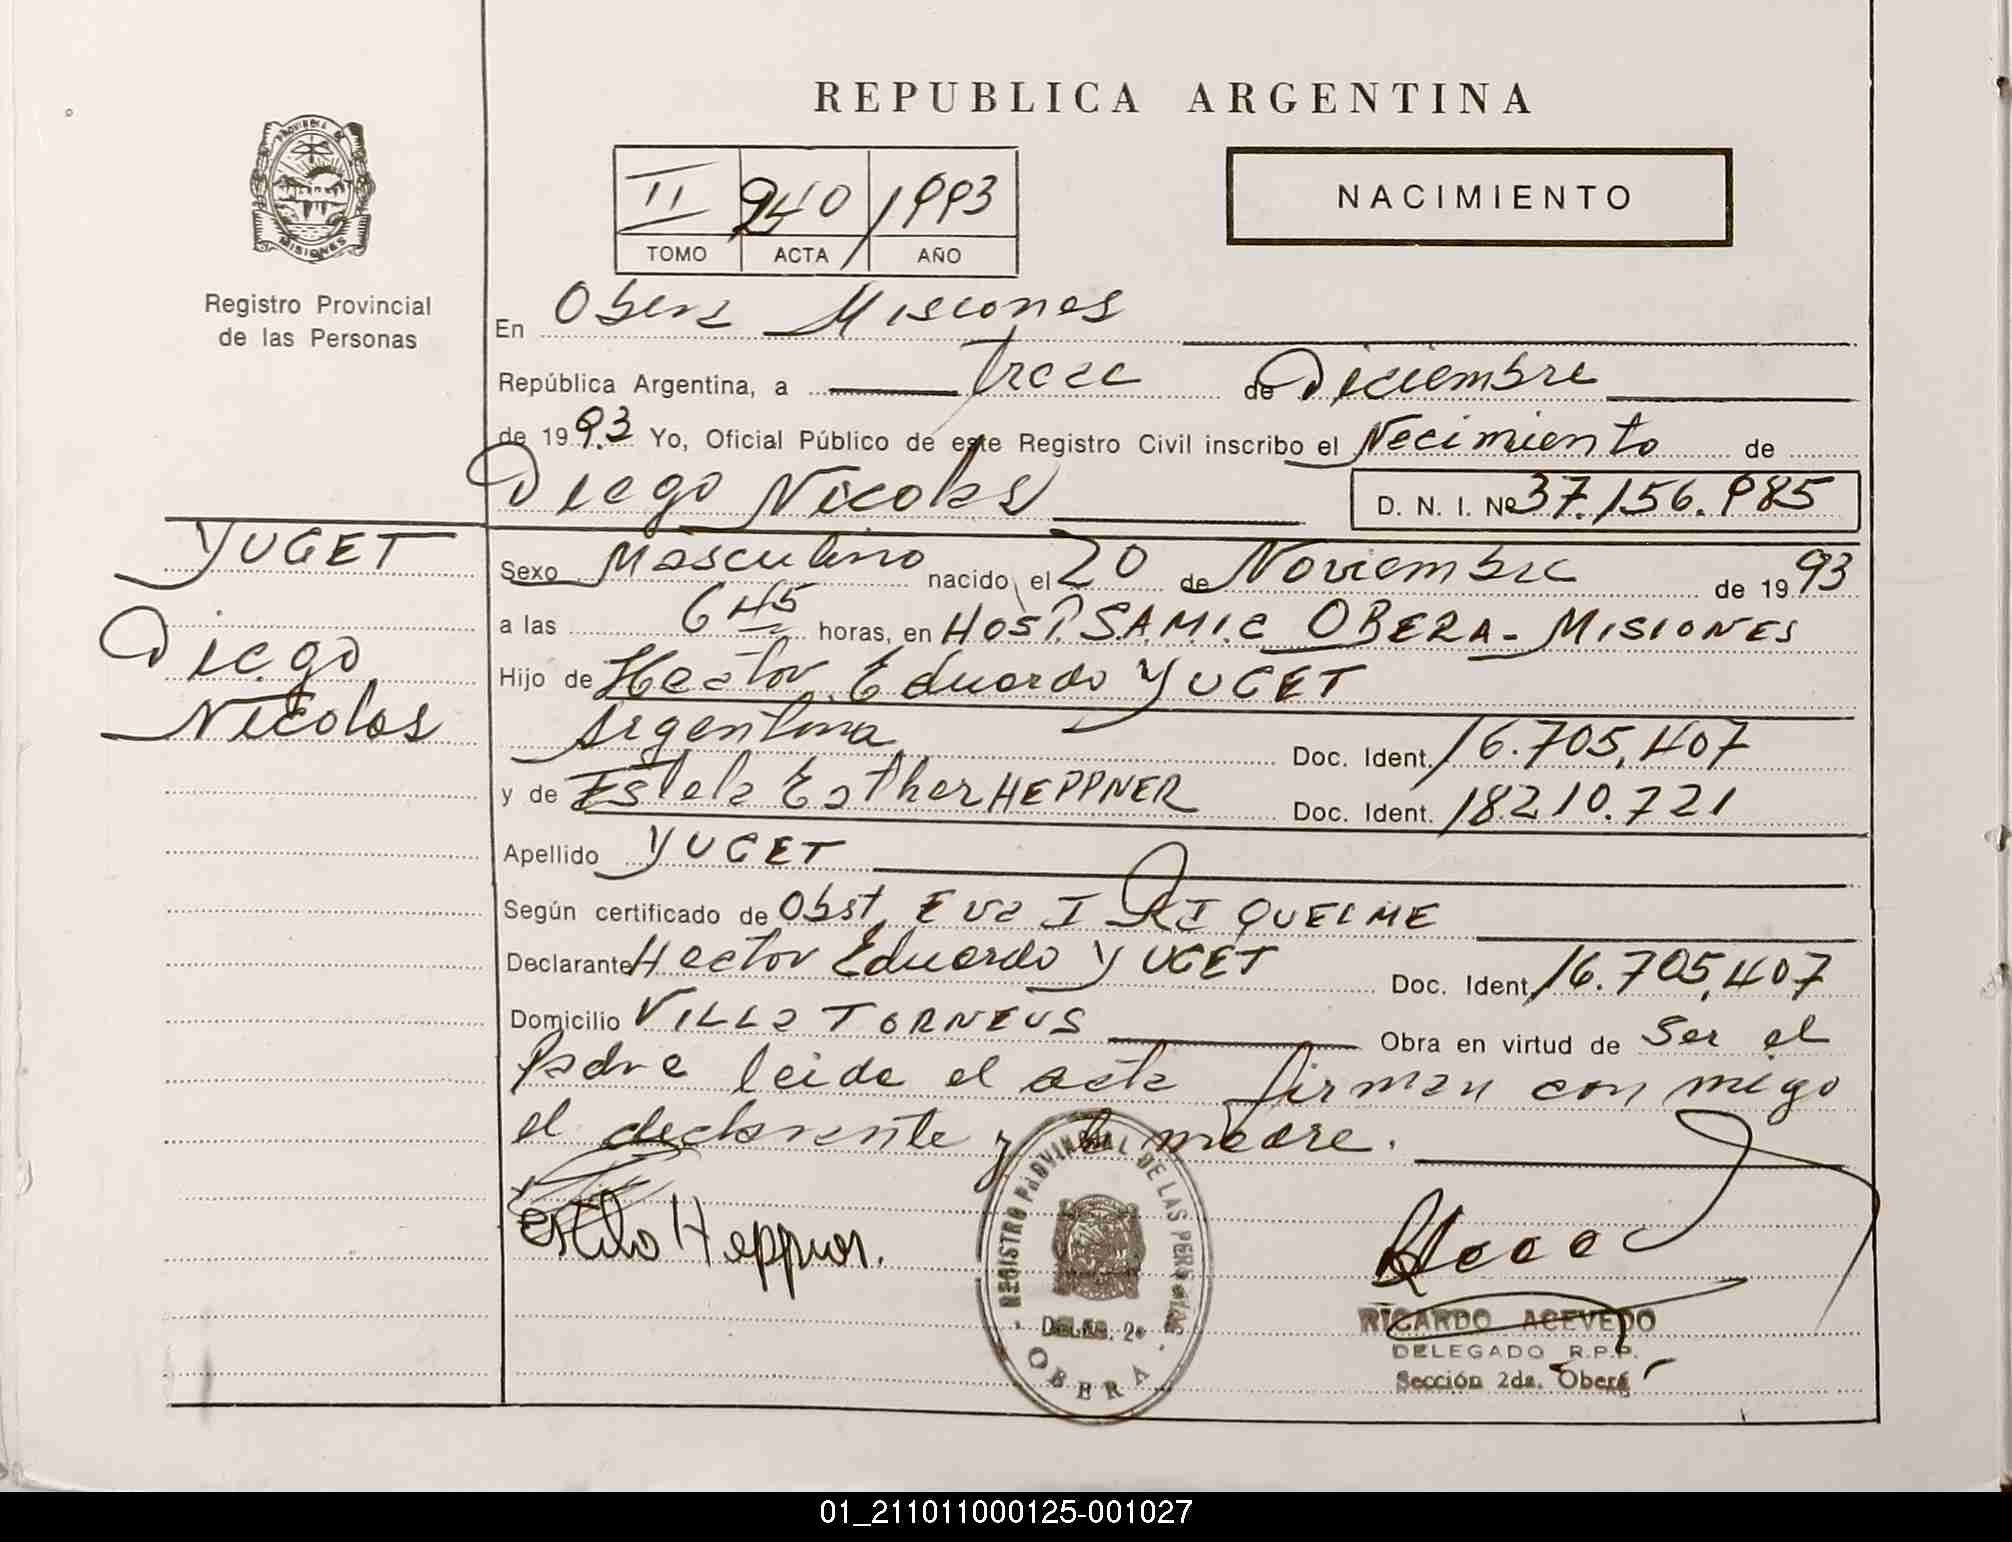 REPUBLICA ARGENTINA
PROVINCIA DE
MISIONES
Registro Provincial
de las Personas
II 940 1993
TOMO ACTA AÑO
NACIMIENTO
En Obera Misiones
República Argentina, a trece de Diciembre
de 1993 Yo, Oficial Público de este Registro Civil inscribo el Nacimiento de
Diego Nicolas D. N. I. Nº 37.156.985
YUGET
Diego
Nicolas
Sexo Masculino nacido el 20 de Noviembre de 1993
a las 6 45 horas, en HOSP. SAMIC OBERA - MISIONES
Hijo de Hector Eduardo YUGET
Argentina Doc. Ident. 16.705.407
y de Estela Esther HEPPNER Doc. Ident. 18.210.721
Apellido YUGET
Según certificado de Obst. Eva I RIQUELME
Declarante Hector Eduardo YUGET Doc. Ident. 16.705.407
Domicilio VILLa TORNEUS Obra en virtud de Ser el
Padre leida el acta firman con migo
el declarante y la madre.
Estela Heppner.
REGISTRO PROVINCIAL DE LAS PERSONAS
DELEG. 2a
OBERA
RICARDO ACEVEDO
DELEGADO R.P.P.
Sección 2da. Oberá
01_211011000125-001027